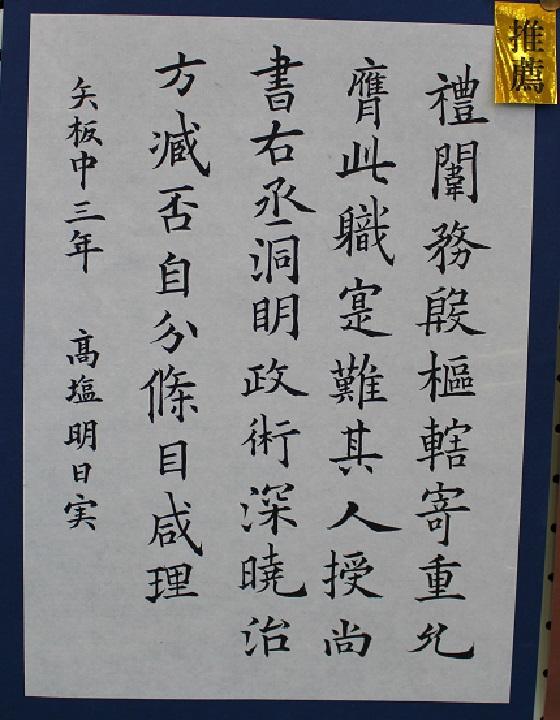 推薦
禮闈務殷樞轄寄重允
膺此職寔難其人授尚
書右丞洞明政術深曉治
方臧否自分條目咸理
矢板中三年 髙塩明日実